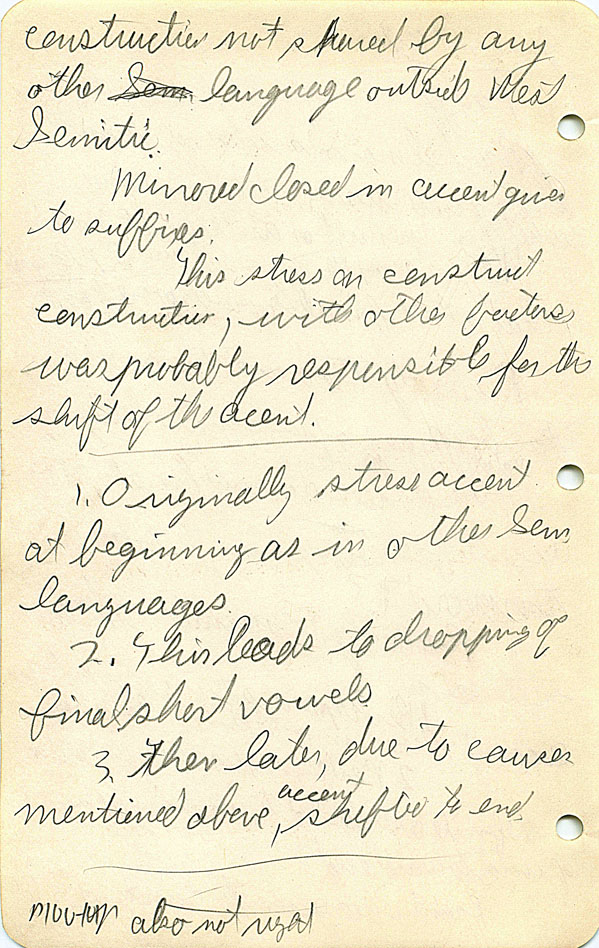 construction not shared by any
other Sem. language outside West
Semitic.
Minored closed in accent given
to suffixes.
This stress on construct
construction, with other factors
was probably responsible for the
shift of the accent.
1. Originally stress accent
at beginning as in other Sem
languages.
2. This leads to dropping of
final short vowels
3. Then later, due to causes
mentioned above, accent shifted to end.
also not